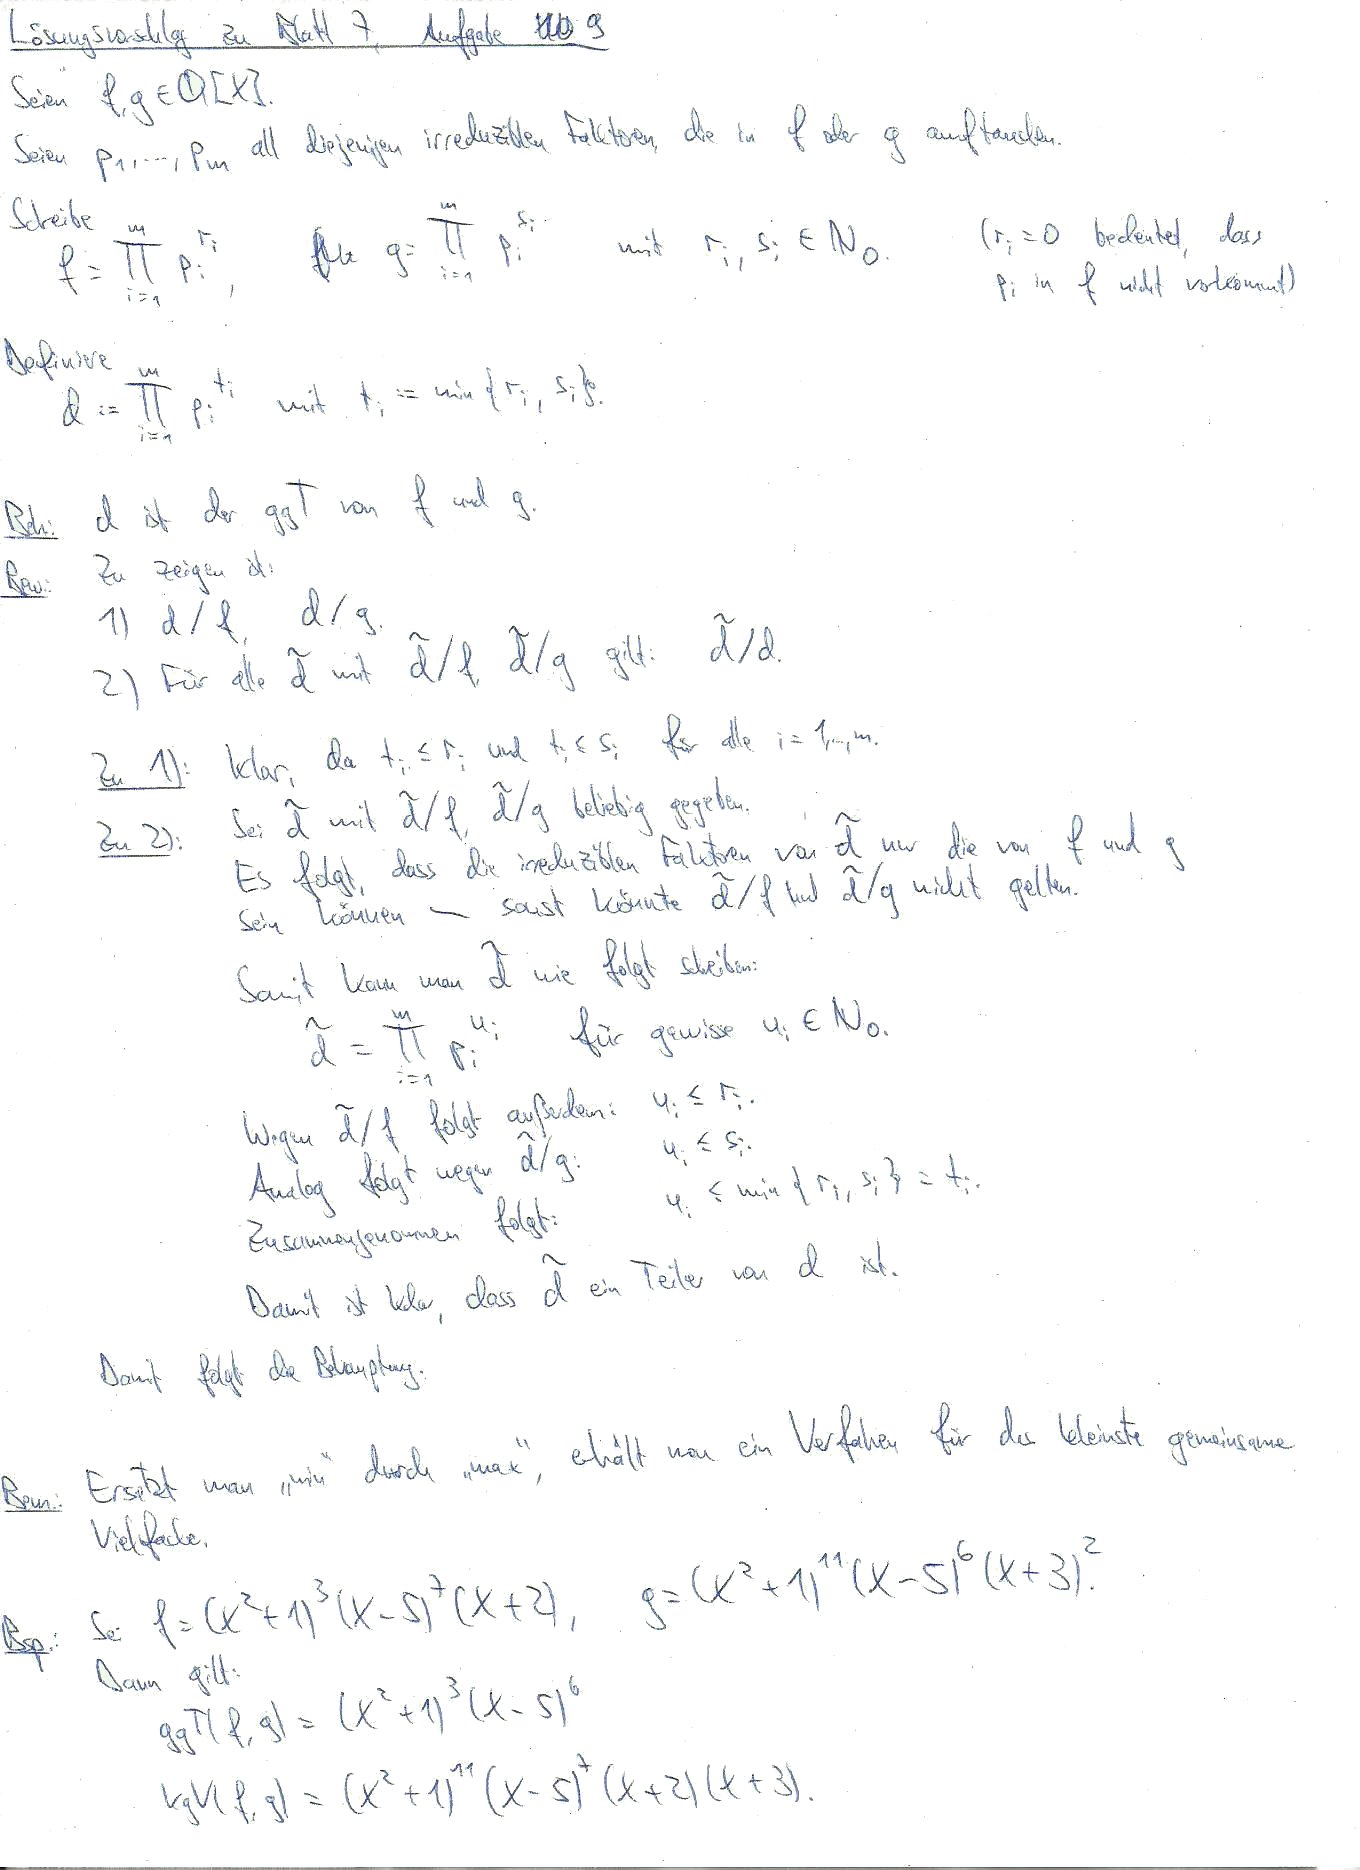 Lösungsvorschlag zu Blatt 7, Aufgabe 9
Seien f, g ∈ Q[X].
Seien p₁, ..., pₘ all diejenigen irreduziblen Faktoren, die in f oder g auftauchen.
Schreibe
f = ∏_{i=1}^{m} p_i^{r_i}, g = ∏_{i=1}^{m} p_i^{s_i} mit r_i, s_i ∈ N₀. (r_i = 0 bedeutet, dass
p_i in f nicht vorkommt)
Definiere
d := ∏_{i=1}^{m} p_i^{t_i} mit t_i := min{r_i, s_i}.
Beh.: d ist der ggT von f und g.
Bew.: Zu zeigen ist:
1) d/f, d/g.
2) Für alle d̃ mit d̃/f, d̃/g gilt: d̃/d.
Zu 1): Klar, da t_i ≤ r_i und t_i ≤ s_i für alle i = 1, .., m.
Zu 2): Sei d̃ mit d̃/f, d̃/g beliebig gegeben.
Es folgt, dass die irreduziblen Faktoren von d̃ nur die von f und g
sein können – sonst könnte d̃/f und d̃/g nicht gelten.
Somit kann man d̃ wie folgt schreiben:
d̃ = ∏_{i=1}^{m} p_i^{u_i} für gewisse u_i ∈ N₀.
Wegen d̃/f folgt außerdem: u_i ≤ r_i.
Analog folgt wegen d̃/g: u_i ≤ s_i.
Zusammengenommen folgt: u_i ≤ min{r_i, s_i} = t_i.
Damit ist klar, dass d̃ ein Teiler von d ist.
Damit folgt die Behauptung.
Bem.: Ersetzt man „min“ durch „max“, erhält man ein Verfahren für das kleinste gemeinsame
Vielfache.
Bsp.: Sei f = (X²+1)³(X-5)⁷(X+2), g = (X²+1)¹¹(X-5)⁶(X+3)².
Dann gilt:
ggT(f, g) = (X²+1)³(X-5)⁶
kgV(f, g) = (X²+1)¹¹(X-5)⁷(X+2)(X+3).